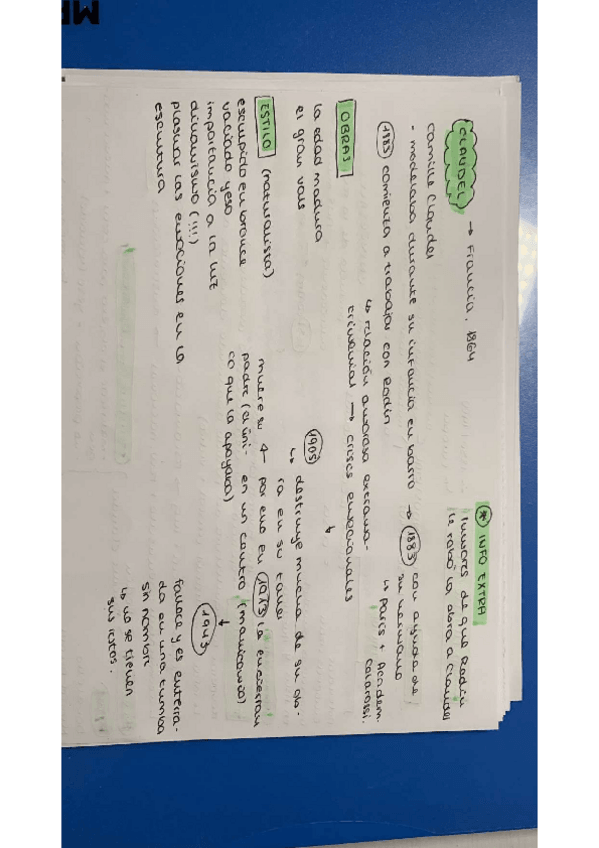 CLAUDEL → Francia, 1864
Camille Claudel
- modelaba durante su infancia en barro → 1883 con ayuda de
su hermano
↳ París + Academ.
Colarossi.
1883 comienza a trabajar con Rodin
↳ relación amorosa extrama-
trimonial → crisis emocionales
* INFO EXTRA
rumores de que Rodin
le robó la obra a Claudel
OBRAS
la edad madura
el gran vals
1905
↳ destruye mucha de su ob-
ra en su taller
ESTILO (naturalista)
esculpido en bronce
vaciado yeso
importancia a la luz
dinamismo (!!!)
plasmar las emociones en la
escultura
muere su
padre (el úni-
co que la apoyaba)
← por eso en 1913 la encierran
en un centro (manicomio)
1943
fallece y es enterra-
da en una tumba
sin nombre
↳ no se tienen
sus restos.